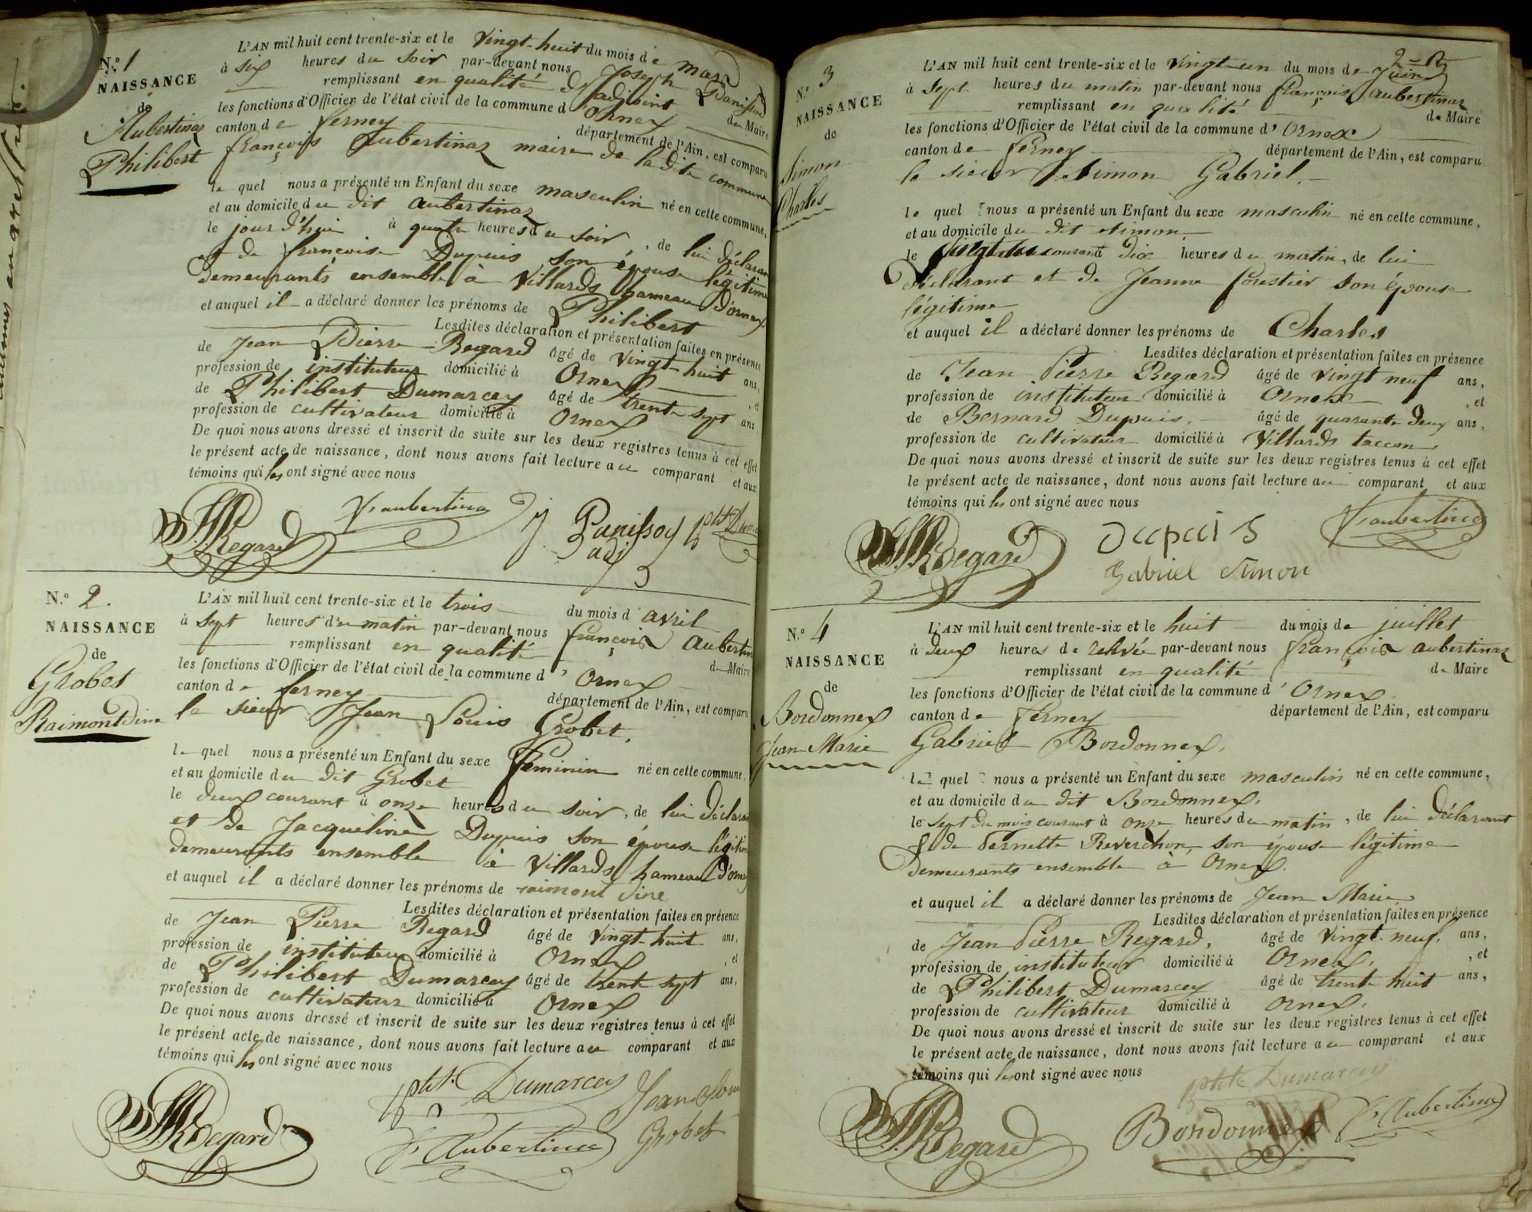 N.º 1
NAISSANCE
de
Aubertinaz
Philibert
L'AN mil huit cent trente-six et le vingt-huit du mois de mars
à six heures du soir par-devant nous Joseph Panissod
remplissant en qualité d'adjoint de Maire
les fonctions d'Officier de l'état civil de la commune d Ornex
canton de Ferney département de l'Ain, est comparu
françois Aubertinaz maire de la dite commune
le quel nous a présenté un Enfant du sexe masculin né en cette commune,
et au domicile du dit aubertinaz
le jour d'hui à quatre heures du soir, de lui déclarant
et de françoise Dupuis son épouse légitime
demeurants ensemble à Villards hameau d'ornex
et auquel il a déclaré donner les prénoms de Philibert
Lesdites déclaration et présentation faites en présence
de Jean Pierre Regard âgé de vingt-huit ans,
profession de instituteur domicilié à Ornex, et
de Philibert Dumarcey âgé de trente sept ans
profession de cultivateur domicilié à Ornex
De quoi nous avons dressé et inscrit de suite sur les deux registres tenus à cet effet
le présent acte de naissance, dont nous avons fait lecture au comparant et aux
témoins qui les ont signé avec nous
Regard
f. aubertinaz
J. Panissod
adj
N.º 2.
NAISSANCE
de
Grobet
Raimondine
L'AN mil huit cent trente-six et le trois du mois d'avril
à sept heures du matin par-devant nous françois Aubertin
remplissant en qualité de Maire
les fonctions d'Officier de l'état civil de la commune d'Ornex
canton de ferney département de l'Ain, est comparu
le sieur Jean Louis Grobet,
le quel nous a présenté un Enfant du sexe feminin né en cette commune,
et au domicile du dit Grobet
le deux courant à onze heures du soir, de lui déclara
et de Jacqueline Dupuis son épouse légitim
demeurants ensemble à Villards hameau d'orne
et auquel il a déclaré donner les prénoms de raimondine
Lesdites déclaration et présentation faites en présence
de Jean Pierre Regard âgé de vingt-huit ans,
profession de instituteur domicilié à Ornex, et
de Philibert Dumarcey âgé de trente sept ans,
profession de cultivateur domicilié à Ornex
De quoi nous avons dressé et inscrit de suite sur les deux registres tenus à cet effet
le présent acte de naissance, dont nous avons fait lecture au comparant et aux
témoins qui les ont signé avec nous
pht. Dumarcey
Jean Loui
Regard
f. Aubertinaz
Grobet
N.º 3
NAISSANCE
de
Simon
Charles
L'AN mil huit cent trente-six et le vingt-un du mois de Juin
à sept heures du matin par-devant nous françois aubertinaz
remplissant en qualité de Maire
les fonctions d'Officier de l'état civil de la commune d'Ornex
canton de ferney département de l'Ain, est comparu
le sieur Simon Gabriel.
le quel nous a présenté un Enfant du sexe masculin né en cette commune,
et au domicile du dit simon
le courant dix heures du matin, de lui
déclarant et de Jeanne forestier son épouse
légitime
et auquel il a déclaré donner les prénoms de Charles
Lesdites déclaration et présentation faites en présence
de Jean Pierre Regard âgé de vingt neuf ans,
profession de instituteur domicilié à Ornex, et
de Bernard Dupuis. âgé de quarante deux ans,
profession de cultivateur domicilié à Villards taccon,
De quoi nous avons dressé et inscrit de suite sur les deux registres tenus à cet effet
le présent acte de naissance, dont nous avons fait lecture au comparant et aux
témoins qui les ont signé avec nous
f. aubertinaz
Regard
Dupuis
Gabriel Simon
N.º 4
NAISSANCE
de
Bordonnex
Jean Marie
L'AN mil huit cent trente-six et le huit du mois de juillet
à deux heures de relevée par-devant nous françois aubertinaz
remplissant en qualité de Maire
les fonctions d'Officier de l'état civil de la commune d'Ornex
canton de Ferney département de l'Ain, est comparu
Gabriel Bordonnex,
le quel nous a présenté un Enfant du sexe masculin né en cette commune,
et au domicile du dit Bordonnex,
le sept du mois courant à onze heures du matin, de lui déclarant
& de Pernette Reverchon, son épouse légitime
demeurants ensemble à Ornex.
et auquel il a déclaré donner les prénoms de Jean Marie
Lesdites déclaration et présentation faites en présence
de Jean Pierre Regard, âgé de vingt-neuf, ans,
profession de instituteur domicilié à Ornex, et
de Philibert Dumarcey âgé de trente huit ans,
profession de cultivateur domicilié à Ornex,
De quoi nous avons dressé et inscrit de suite sur les deux registres tenus à cet effet
le présent acte de naissance, dont nous avons fait lecture au comparant et aux
témoins qui les ont signé avec nous
Dumarcey
Regard
Bordonnex
f. Aubertinaz